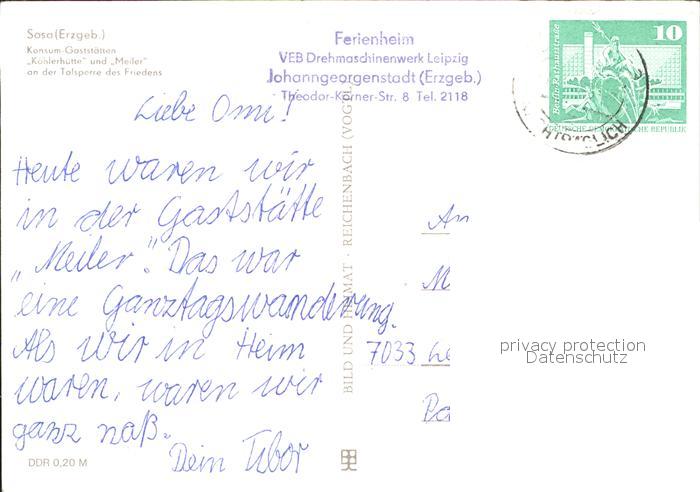 Sosa (Erzgeb.)
Konsum-Gaststätten
„Köhlerhütte" und „Meiler"
an der Talsperre des Friedens
Ferienheim
VEB Drehmaschinenwerk Leipzig
Johanngeorgenstadt (Erzgeb.)
Theodor-Körner-Str. 8 Tel. 2118
10
Berlin-Rathausstraße
DEUTSCHE DEMOKRATISCHE REPUBLIK
Liebe Omi!
Heute waren wir
in der Gaststätte
„Meiler". Das war
eine Ganztagswanderung.
Als wir in Heim
waren, waren wir
ganz naß.
Dein Tibor
BILD UND HEIMAT · REICHENBACH (VOGTL)
An
M
7033 Le
Pa
privacy protection
Datenschutz
DDR 0,20 M